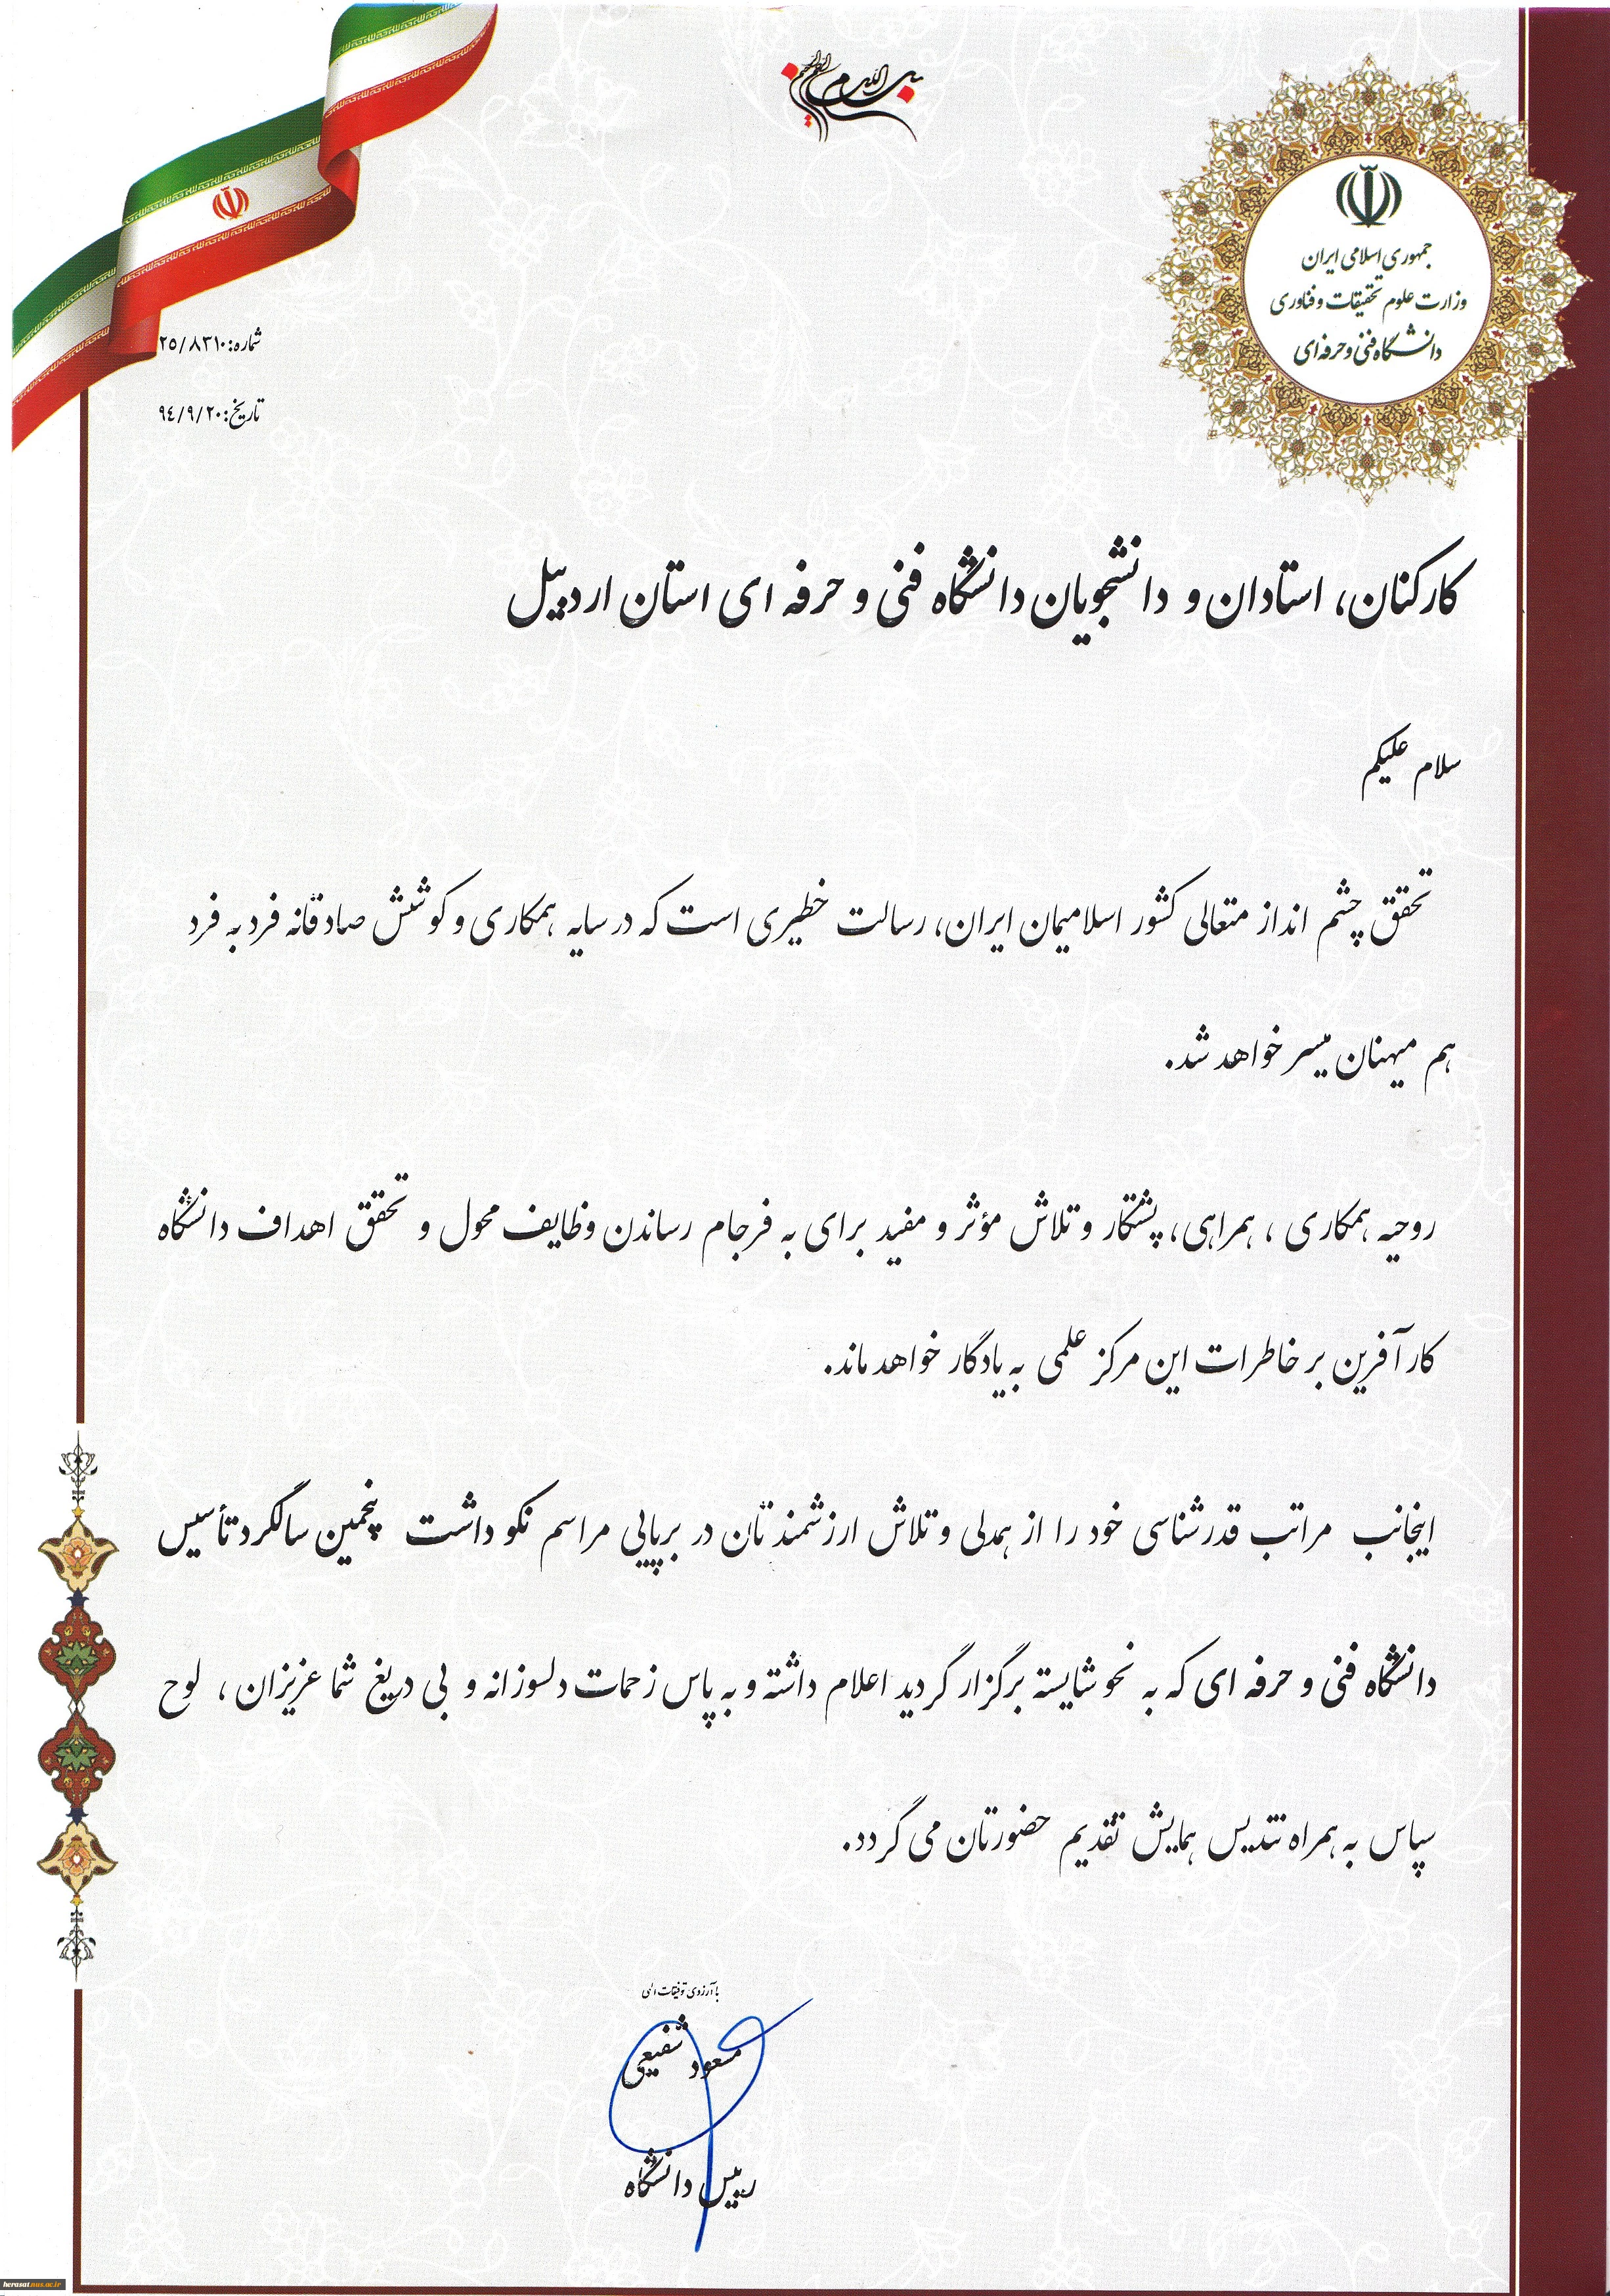 بسم الله الرحمن الرحیم
جمهوری اسلامی ایران
وزارت علوم تحقیقات و فناوری
دانشگاه فنی و حرفه ای
شماره: ۲۵/۸۳۱۰
تاریخ: ۹٤/۹/۲۰
کارکنان، استادان و دانشجویان دانشگاه فنی و حرفه ای استان اردبیل
سلام علیکم
تحقق چشم انداز متعالی کشور اسلامیمان ایران، رسالت خطیری است که در سایه همکاری و کوشش صادقانه فرد به فرد
هم میهنان میسر خواهد شد.
روحیه همکاری ، همراهی، پشتکار و تلاش مؤثر و مفید برای به فرجام رساندن وظایف محول و تحقق اهداف دانشگاه
کارآفرین بر خاطرات این مرکز علمی به یادگار خواهد ماند.
اینجانب مراتب قدرشناسی خود را از همدلی و تلاش ارزشمندتان در برپایی مراسم نکو داشت پنجمین سالگرد تأسیس
دانشگاه فنی و حرفه ای که به نحو شایسته برگزار گردید اعلام داشته و به پاس زحمات دلسوزانه و بی دریغ شما عزیزان ، لوح
سپاس به همراه تندیس همایش تقدیم حضورتان می گردد.
با آرزوی توفیقات الهی
مسعود شفیعی
رییس دانشگاه
herasat.nus.ac.ir